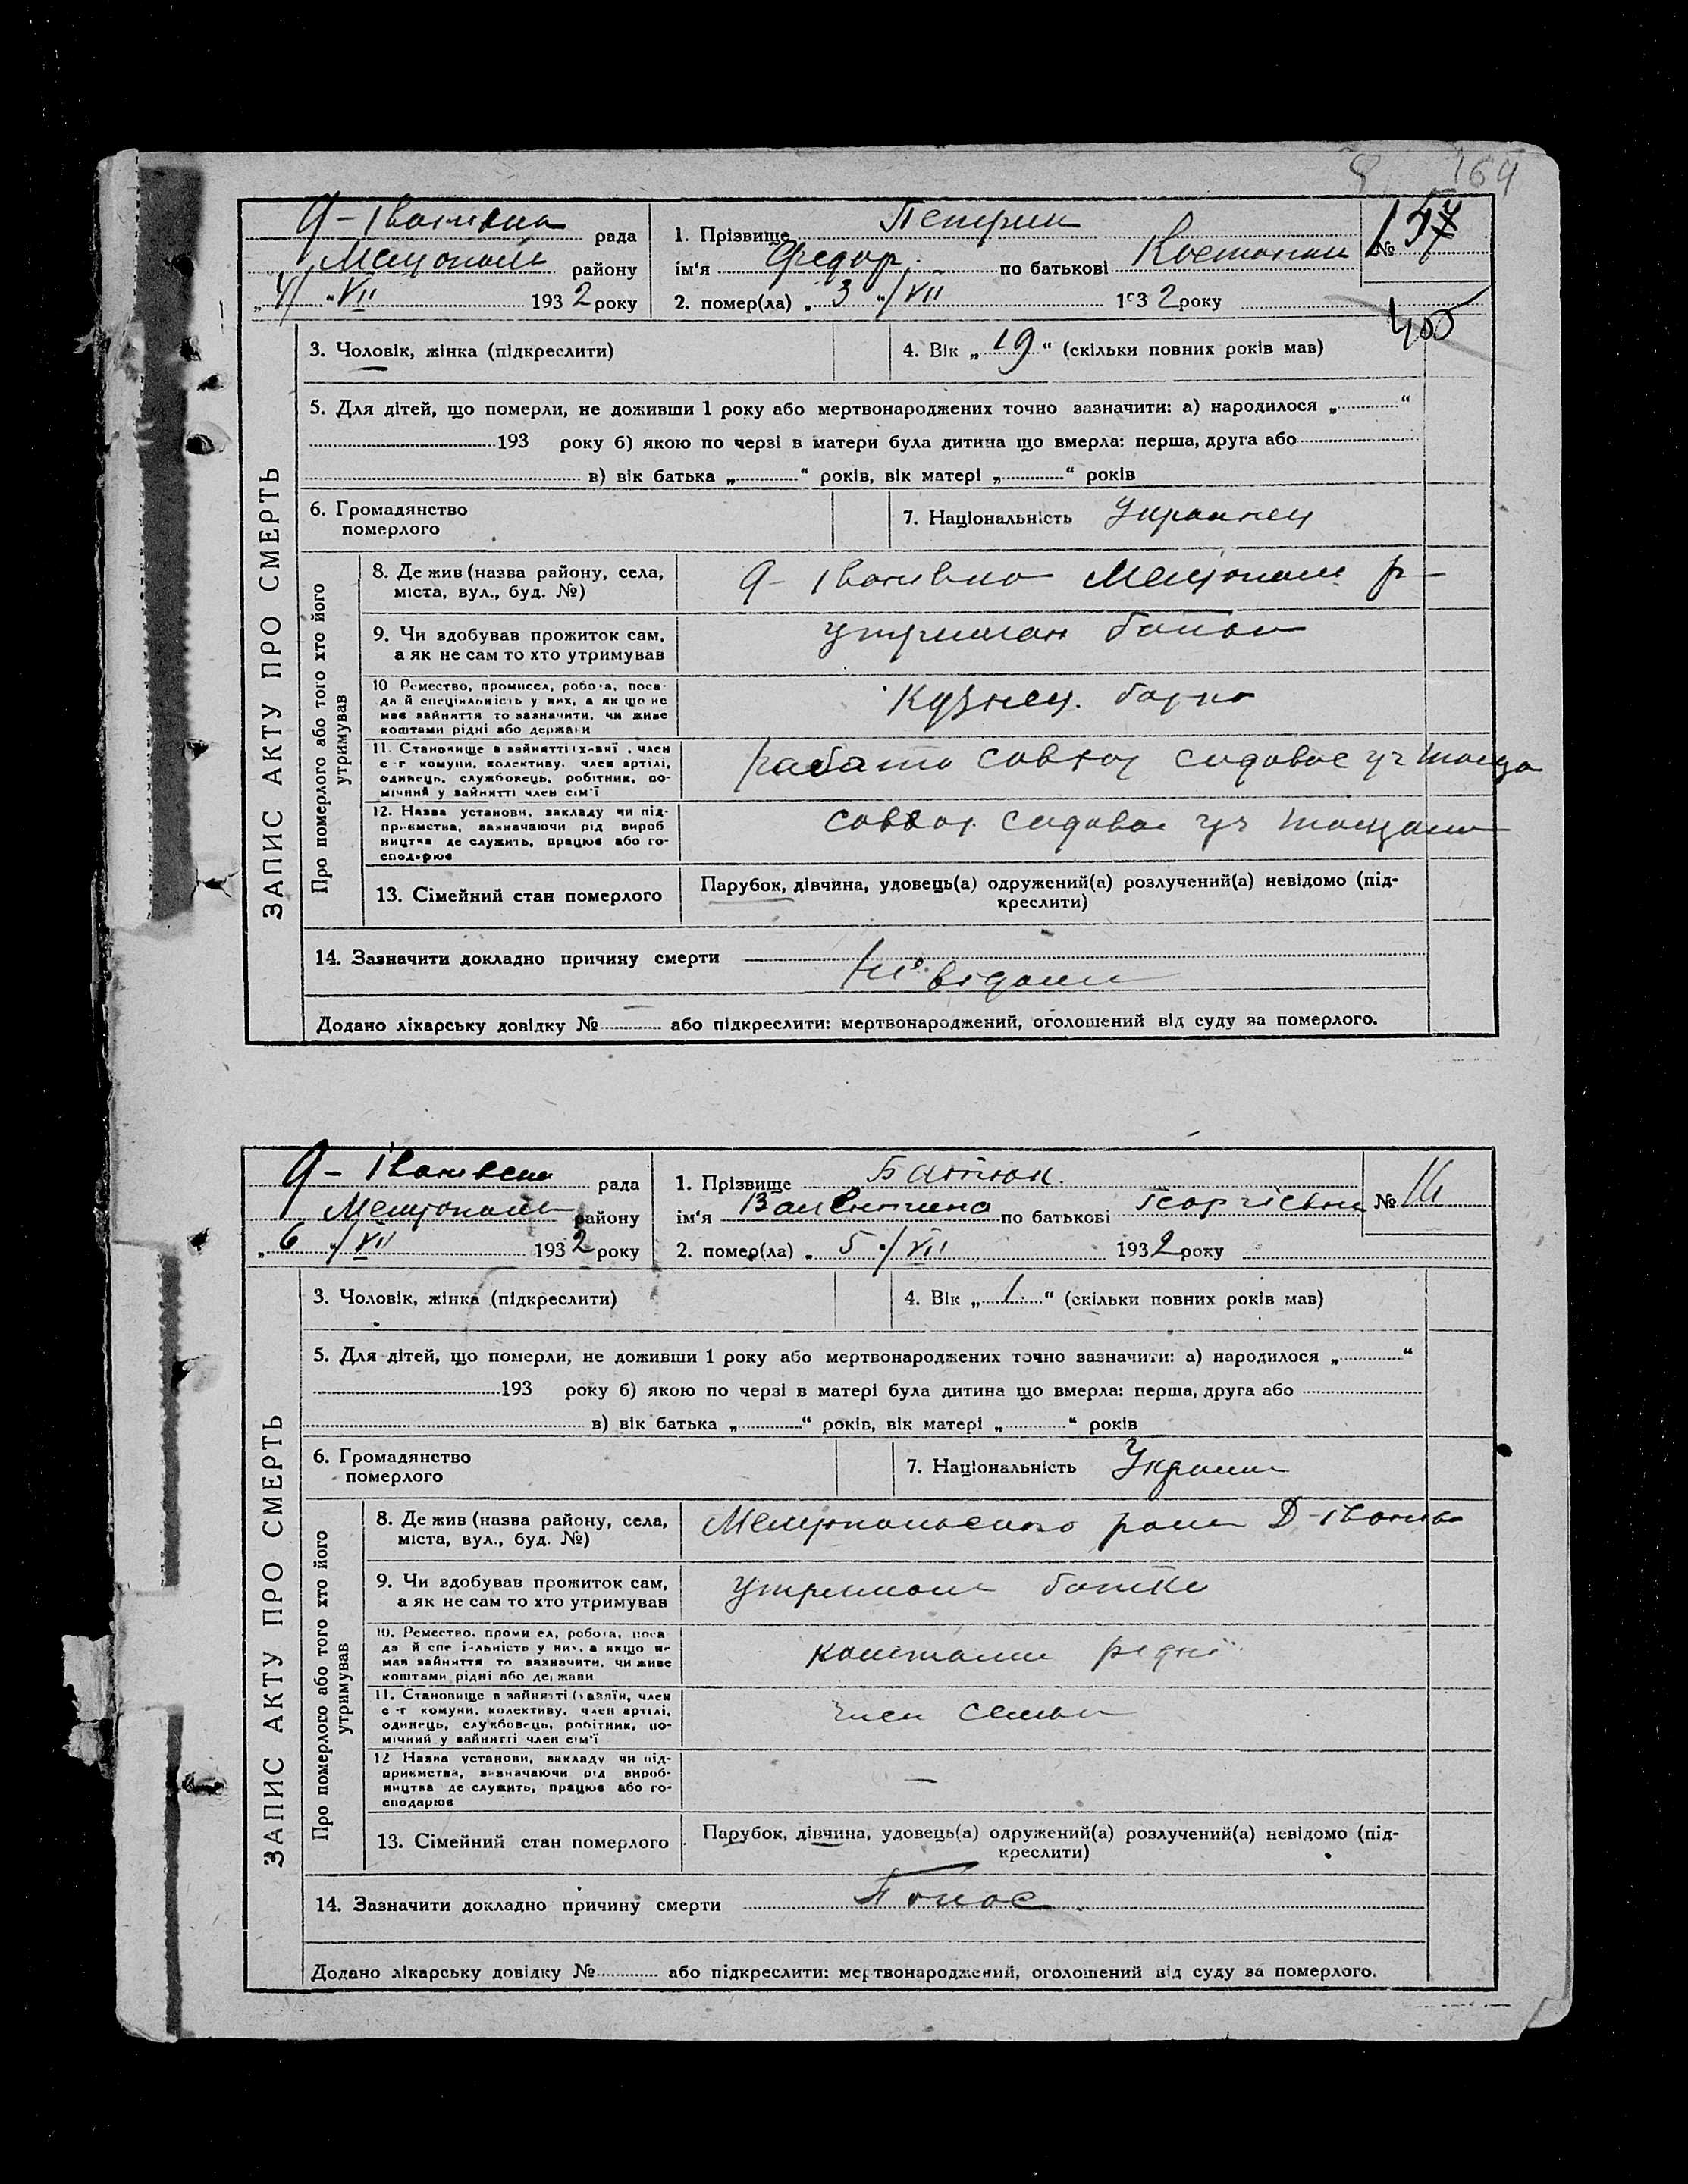 164
рада
району
„4“ VII 1932 року
1. Прізвище Петрик
ім'я Федор по батькові
№
2. помер(ла) „3“ VII 1932 року
3. Чоловік, жінка (підкреслити)
4. Вік „19“ (скільки повних років мав)
5. Для дітей, що померли, не доживши 1 року або мертвонароджених точно зазначити: а) народилося „ “
193 року б) якою по черзі в матери була дитина що вмерла: перша, друга або
в) вік батька „ “ років, вік матері „ “ років
6. Громадянство
померлого
7. Національність Украинец
ЗАПИС АКТУ ПРО СМЕРТЬ
Про померлого або того хто його
утримував
8. Де жив (назва району, села,
міста, вул., буд. №)
9. Чи здобував прожиток сам,
а як не сам то хто утримував
10 Ремество, промисел, робота, поса-
да й спеціяльність у них, а як що не
має зайняття то зазначити, чи живе
коштами рідні або держави
Кузнец
11. Становище в зайнятті (х-вні, член
с-г комуни, колективу, член артілі,
одинець, службовець, робітник, по-
мічний у зайнятті член сім'ї
12. Назва установи, закладу чи під-
приємства, зазначаючи рід вироб
ництва де служить, працює або го-
сподарює
13. Сімейний стан померлого
Парубок, дівчина, удовець(а) одружений(а) розлучений(а) невідомо (під-
креслити)
14. Зазначити докладно причину смерти
Додано лікарську довідку № або підкреслити: мертвонароджений, оголошений від суду за померлого.
рада
району
„6“ VII 1932 року
1. Прізвище
ім'я Валентина по батькові Георгіевна
№
2. помер(ла) „5“ VII 1932 року
3. Чоловік, жінка (підкреслити)
4. Вік „1“ (скільки повних років мав)
5. Для дітей, що померли, не доживши 1 року або мертвонароджених точно зазначити: а) народилося „ “
193 року б) якою по черзі в матері була дитина що вмерла: перша, друга або
в) вік батька „ “ років, вік матері „ “ років
6. Громадянство
померлого
7. Національність
ЗАПИС АКТУ ПРО СМЕРТЬ
Про померлого або того хто його
утримував
8. Де жив (назва району, села,
міста, вул., буд. №)
9. Чи здобував прожиток сам,
а як не сам то хто утримував
10. Ремество, промисел, робота, поса
да й спеціяльність у них, а якщо не
має зайняття то зазначити, чи живе
коштами рідні або держави
коштами рідні
11. Становище в зайнятті (хазяїн, член
с-г комуни, колективу, член артілі,
одинець, службовець, робітник, по-
мічний у зайнятті член сім'ї
член семьи
12 Назва установи, закладу чи під-
приємства, зазначаючи рід вироб-
ництва де служить, працює або го-
сподарює
—
13. Сімейний стан померлого
Парубок, дівчина, удовець(а) одружений(а) розлучений(а) невідомо (під-
креслити)
14. Зазначити докладно причину смерти Понос
Додано лікарську довідку № або підкреслити: мертвонароджений, оголошений від суду за померлого.